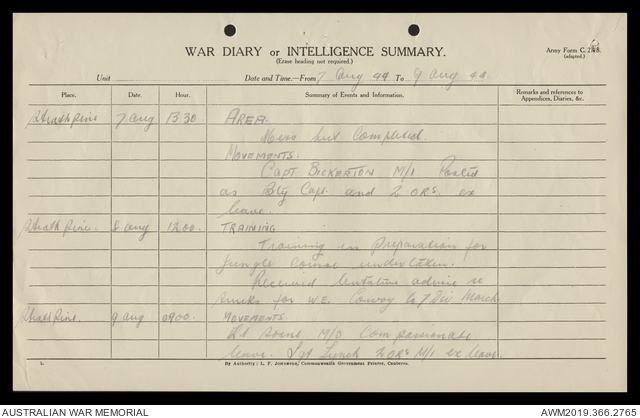 WAR DIARY or INTELLIGENCE SUMMARY.
(Erase heading not required.)
Army Form C.
(adapted.)
Unit
Date and Time.—From 7 Aug 44 To 9 Aug 44
Place. Date. Hour. Summary of Events and Information. Remarks and references to Appendices, Diaries, &c.
Strathpine 7 Aug 1330 AREA.
Mess hut Completed.
MOVEMENTS.
CAPT BICKERTON M/I Posted
as Bty Capt. and 2 ORs. ex
leave.
Strathpine. 8 Aug 1200. TRAINING
Training in preparation for
Jungle Course undertaken.
Received tentative advice re
trucks for WE. Convoy to 7 Div March
Strathpine. 9 Aug 0900. MOVEMENTS.
Lt M/O Compassionate
leave. Sgt Lynch 2 ORs M/I ex leave.
By Authority: L. F. Johnston, Commonwealth Government Printer, Canberra.
AUSTRALIAN WAR MEMORIAL
AWM2019.366.2765